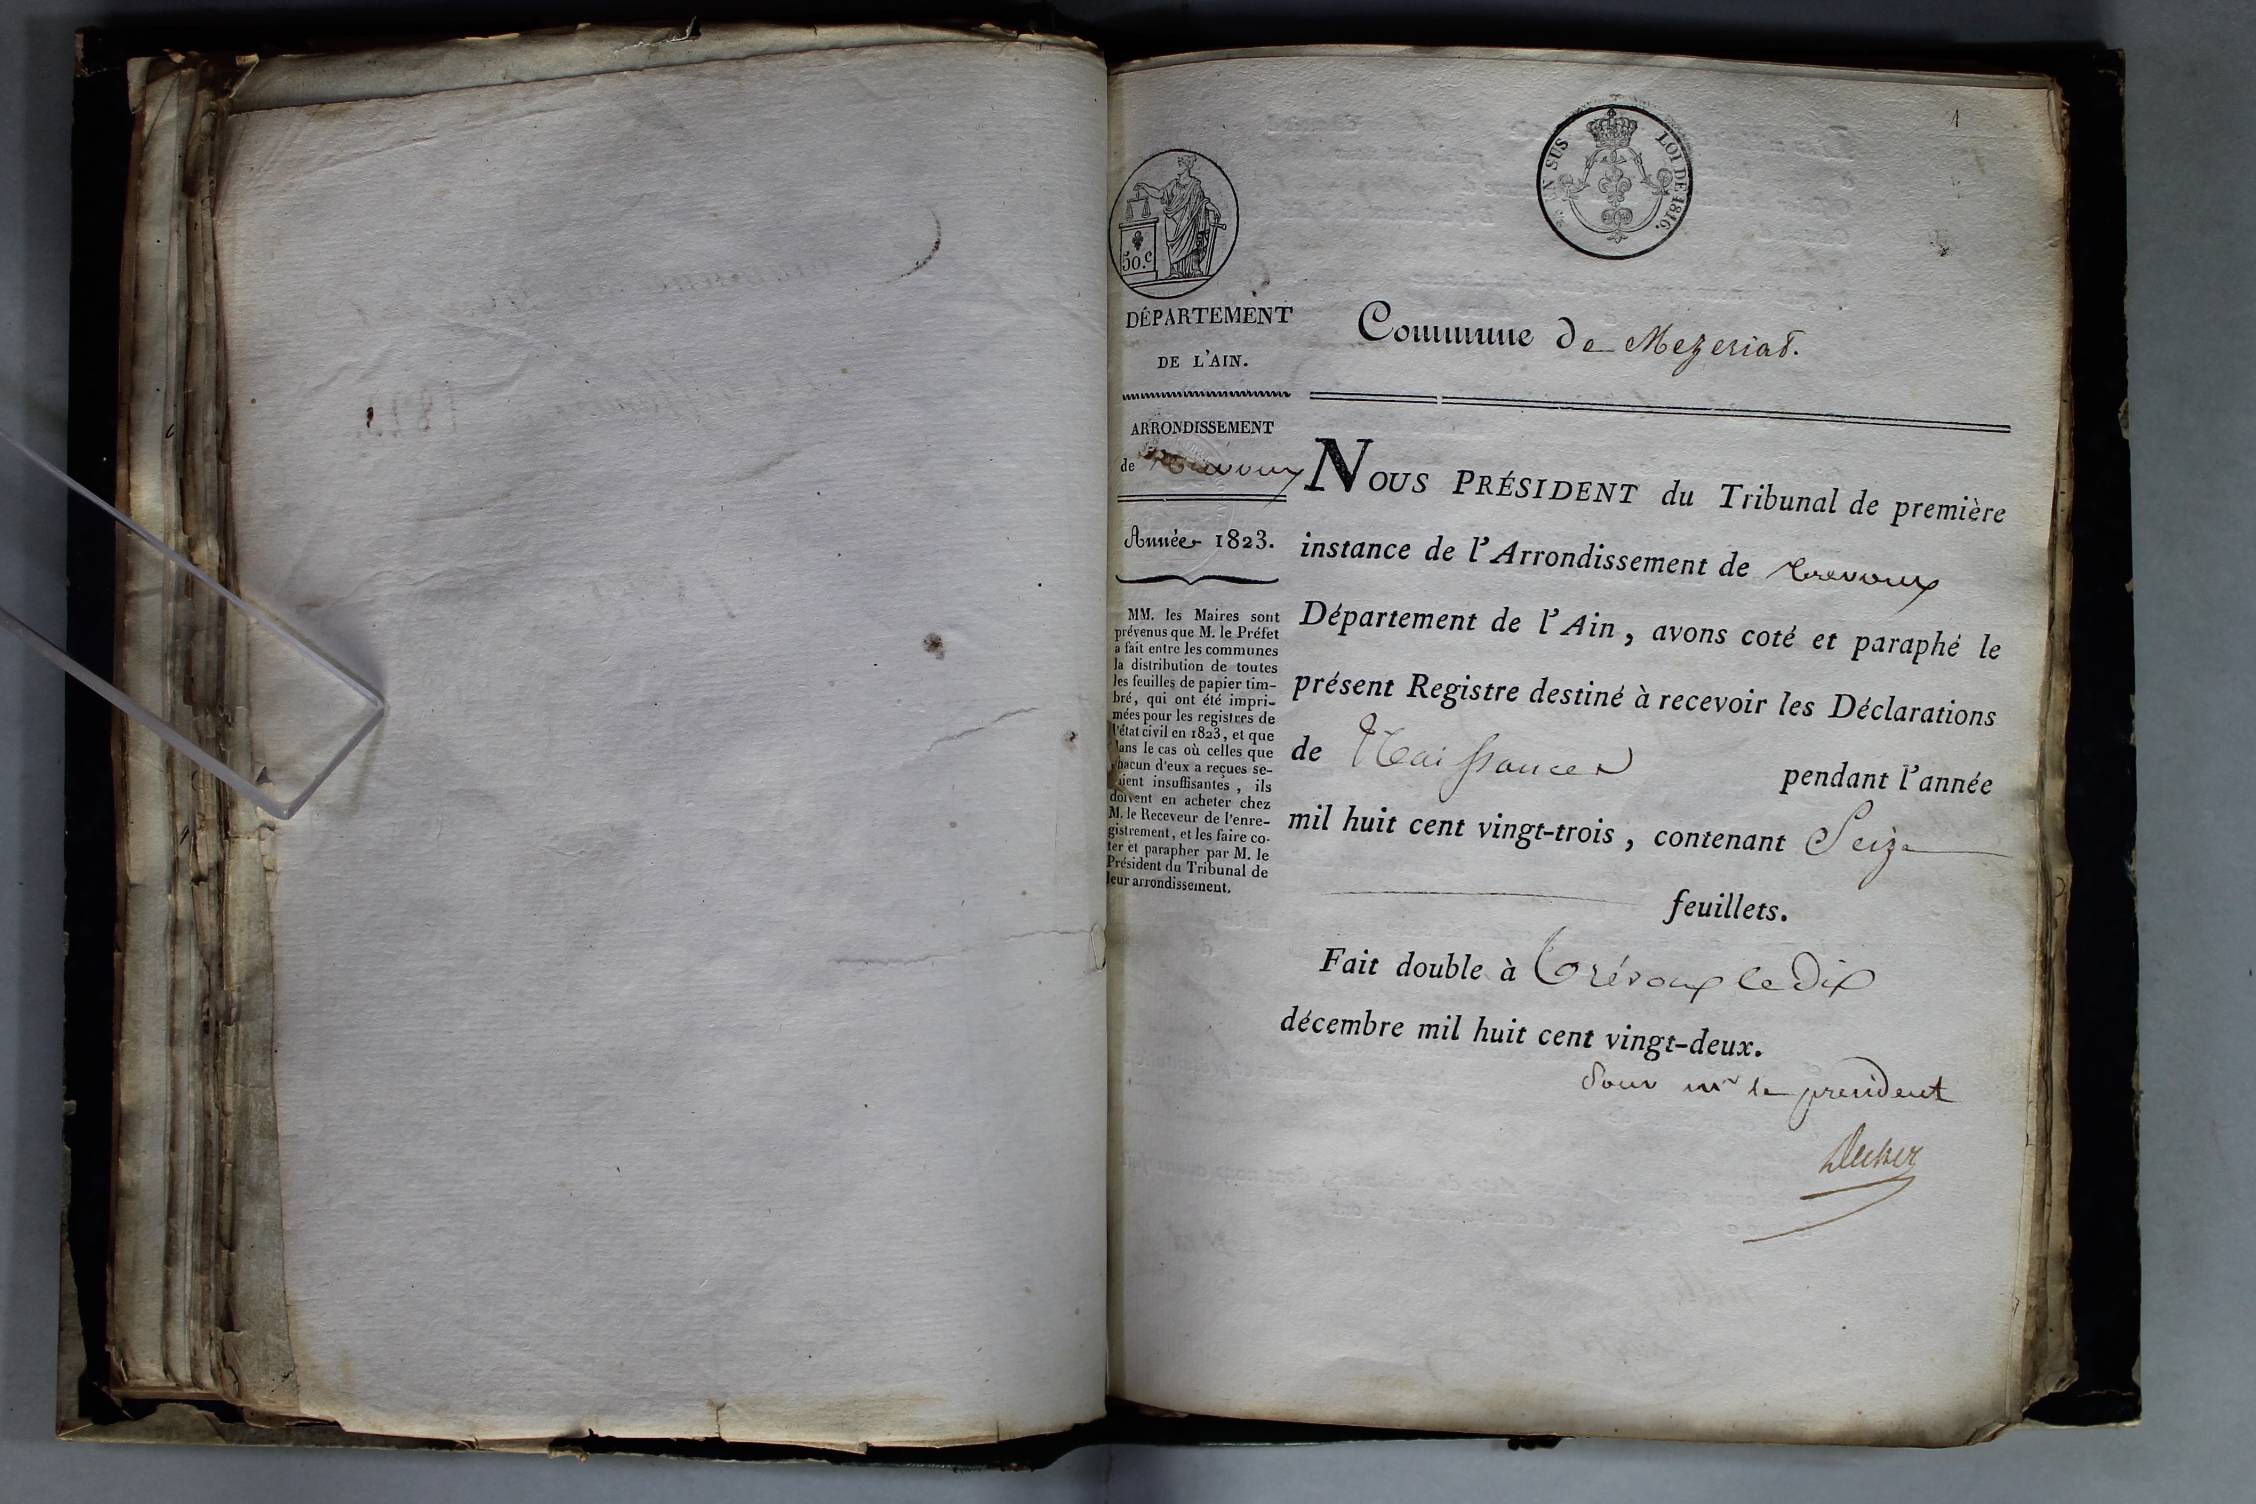 1
EN SUS LOI DE 1816.
50.c
DÉPARTEMENT
DE L'AIN.
ARRONDISSEMENT
de Trevoux
Année 1823.
MM. les Maires sont
prévenus que M. le Préfet
a fait entre les communes
la distribution de toutes
les feuilles de papier tim-
bré, qui ont été impri-
mées pour les registres de
l'état civil en 1823, et que
dans le cas où celles que
chacun d'eux a reçues se-
raient insuffisantes, ils
doivent en acheter chez
M. le Receveur de l'enre-
gistrement, et les faire co-
ter et parapher par M. le
Président du Tribunal de
leur arrondissement.
Commune de Mezeriat.
NOUS PRÉSIDENT du Tribunal de première
instance de l'Arrondissement de Trevoux
Département de l'Ain, avons coté et paraphé le
présent Registre destiné à recevoir les Déclarations
de Naissances pendant l'année
mil huit cent vingt-trois, contenant Seize
feuillets.
Fait double à Trévoux le dix
décembre mil huit cent vingt-deux.
Pour mr le president